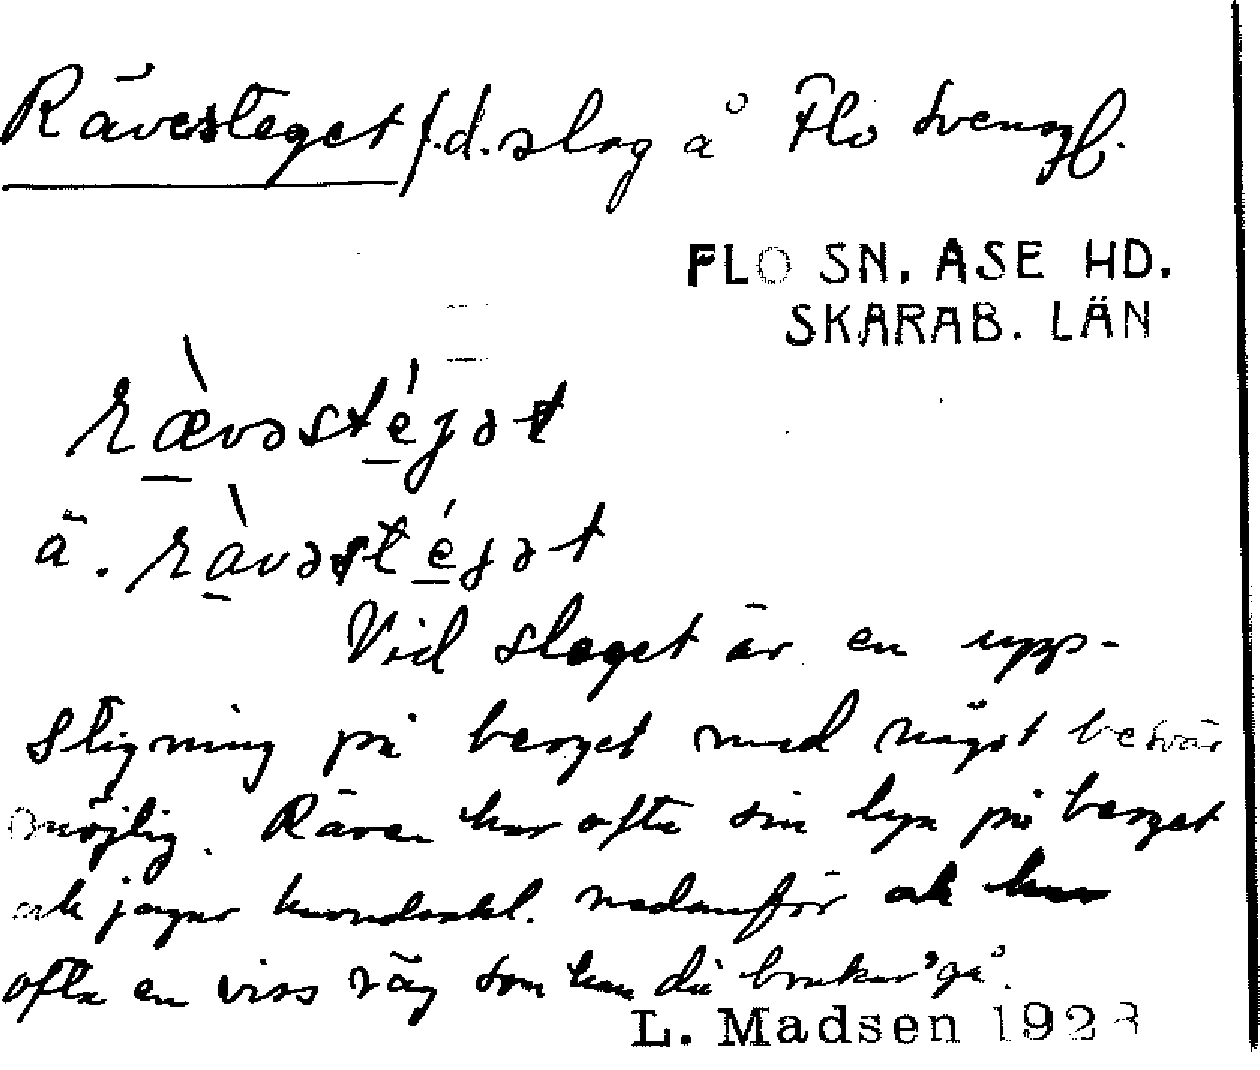 Rävesteget f.d. slog å Flo Svensgl.
FLO SN. ASE HD.
SKARAB. LÄN
rævəstéjət
ä. ràvəstéjət
Vid sloget är en upp-
stigning på berget med något besvär
möjlig. Räven har ofta sin lya på berget
och jagar nedanför och har
ofta en viss väg som han då brukar "gå".
L. Madsen 1923